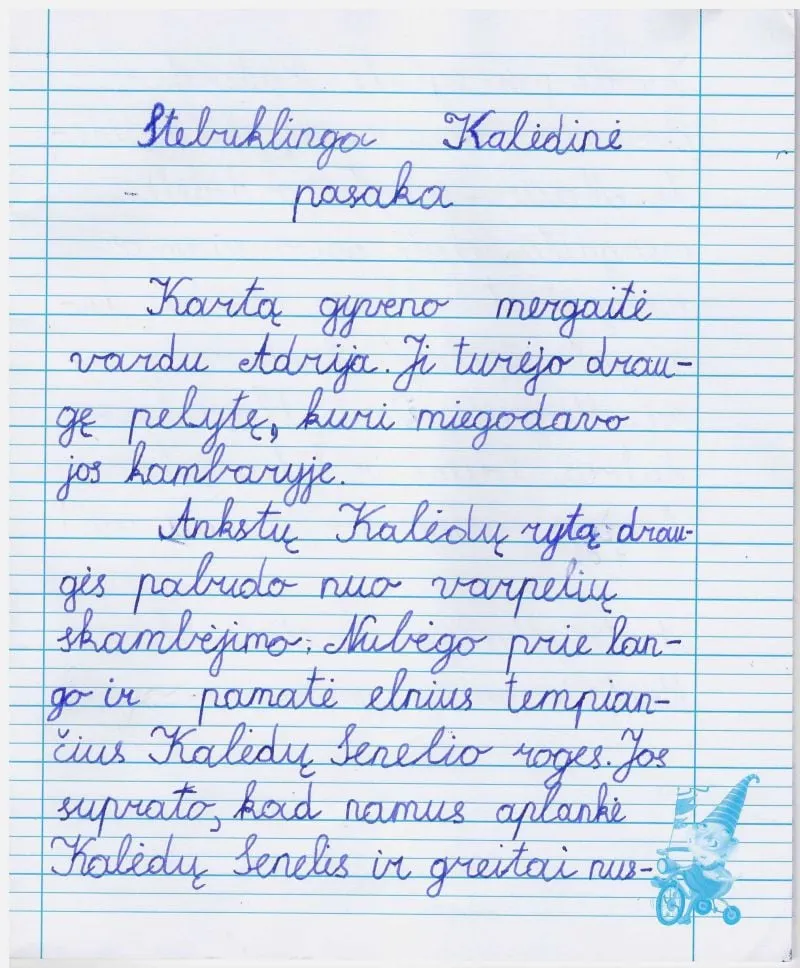 Stebuklinga Kalėdinė
pasaka
Kartą gyveno mergaitė
vardu Adrija. Ji turėjo drau-
gę pelytę, kuri miegodavo
jos kambaryje.
Ankstų Kalėdų rytą drau-
gės pabudo nuo varpelių
skambėjimo. Nubėgo prie lan-
go ir pamatė elnius tempian-
čius Kalėdų Senelio roges. Jos
suprato, kad namus aplankė
Kalėdų Senelis ir greitai nus-